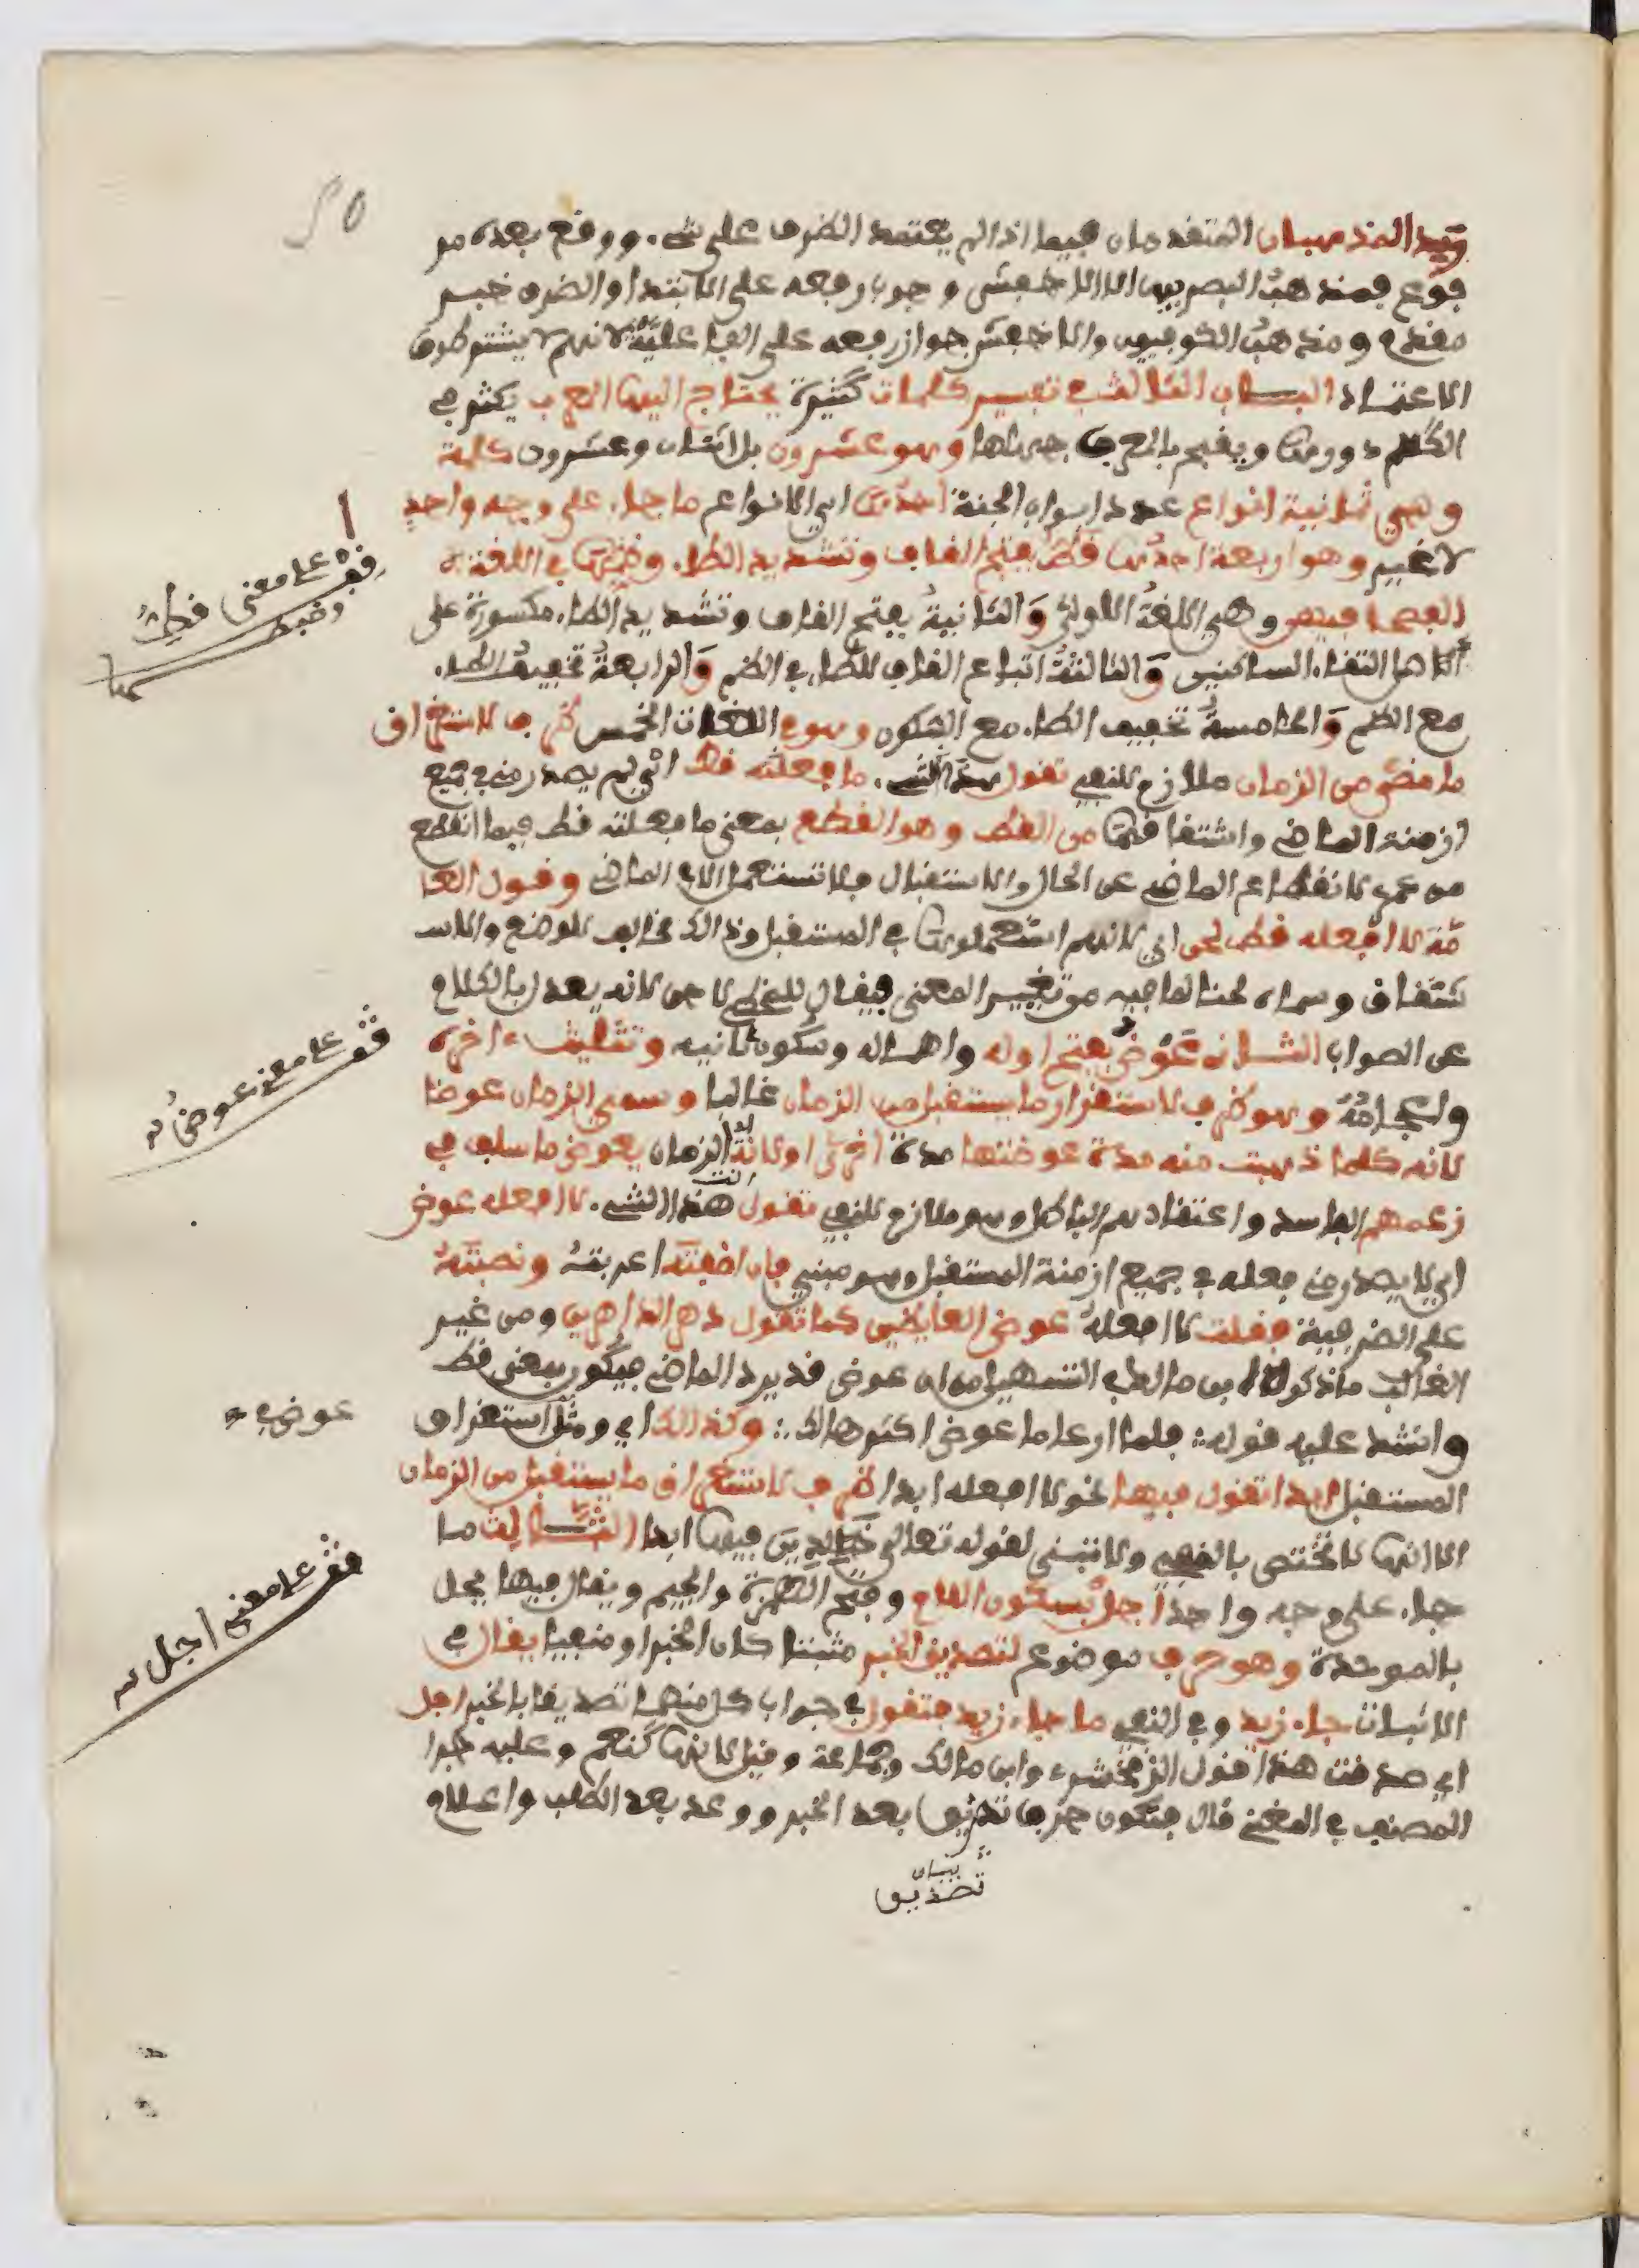 ٢٥
وقيد المذهبان المتقدمان فيما اذا لم يعتمد الظرف على شيء ووقع بعده مر
فوع فمذهب البصريين الا الاخفش وجوب رفعه على الابتدا والظرف خبر
مقدم ومذهب الكوفيون والاخفش جواز رفعه على الفاعلية لانهم لا يشترطون
الاعتماد الباب الثالث في تفسير كلمات كثيرة يحتاج اليها المعرب يكثر في
الكلام دورها ويقبح بالمعرب جهلها وهو عشرون بل اثنتان وعشرون كلمة
وهي ثمانية انواع عدد ابواب الجنة احدها اي الانواع ما جاء على وجه واحد
لا غير وهو اربعة احدها قط بفتح القاف وتشديد الطاء وضمها في اللغة
الفصحا فيهن وهي اللغة الاولى والثانية بفتح القاف وتشديد الطاء مكسورة على
اصل التقاء الساكنين والثالثة اتباع القاف للطاء في الضم والرابعة تخفيف الطاء
مع الضم والخامسة تخفيف الطاء مع السكون وهو في اللغات الخمس ظرف لاستغراق
ما مضى من الزمان ملازم للنفي تقول هذا الشيء ما فعلته قط اي لم يصدر مني في جميع
ازمنة الماضي واشتقاقها من القط وهو القطع بمعنى ما فعلته قط فيما انقطع
من عمري لانقطاع الماضي عن الحال والاستقبال فلا تستعمل الا في الماضي وقول العا
مة لا افعله قط لحن اي لانهم استعملوها في المستقبل وذالك مخالف للوضع والاسـ
تقاق وسماه لحنا لما فيه من تغيير المعنى فيقال للمخطي لاحن لانه يعدل بالكلام
عن الصواب الثاني عوض بفتح اوله واهماله وسكون ثانيه وتثليث اخره
واعجامه وهو ظرف لاستغراق ما يستقبل من الزمان غالبا وسمي الزمان عوضا
لانه كلما ذهبت منه مدة عوضتها مدة اخرى اولان الزمان يعوض ما سلف في
زعمهم الفاسد واعتقادهم الباطل وهو ملازم للنفي تقول انت هذا الشيء لا افعله عوض
اي لا يصدر مني فعله في جميع ازمنة المستقبل وهو مبني فان اضفته اعربته ونصبته
على الظرفية فقلت لا افعله عوض العايضين كما تقول دهر الداهرين ومن غير
الغالب ما ذكره ابن مالك في التسهيل من ان عوض قد يرد الماضي فيكون بمعنى قط
وانشد عليه قوله فلم ار عاما عوض اكثر هالكا وكذالك اي ومثل استغراق
المستقبل ابدا تقول فيها نحو لا افعله ابدا ظرف لاستغراق ما يستقبل من الزمان
الا انها لا تختص بالنفي ولا تبنى لقوله تعالى خالدين فيها ابدا الثالث ما
جاء على وجه واحد اجل بسكون اللام وفتح الهمزة والجيم ويقال فيها بجل
بالموحدة وهو حرف موضوع لتصديق الخبر مثبتا كان الخبر او منفيا يقال في
الاثبات جاء زيد وفي النفي ما جاء زيد فتقول في جواب كل منهما تصديقا بالخبر اجل
اي صدقت هذا قول الزمخشري وابن مالك وجماعة وقيل لانها كنعم وعليه جرا
المصنف في المغني قال فتكون حرف تصديق بعد الخبر ووعد بعد الطلب واعلام
بيان
تصديق
قف على معنى قط
وضبطـ
قف على معنى عوض
عوض
قف على معنى اجل